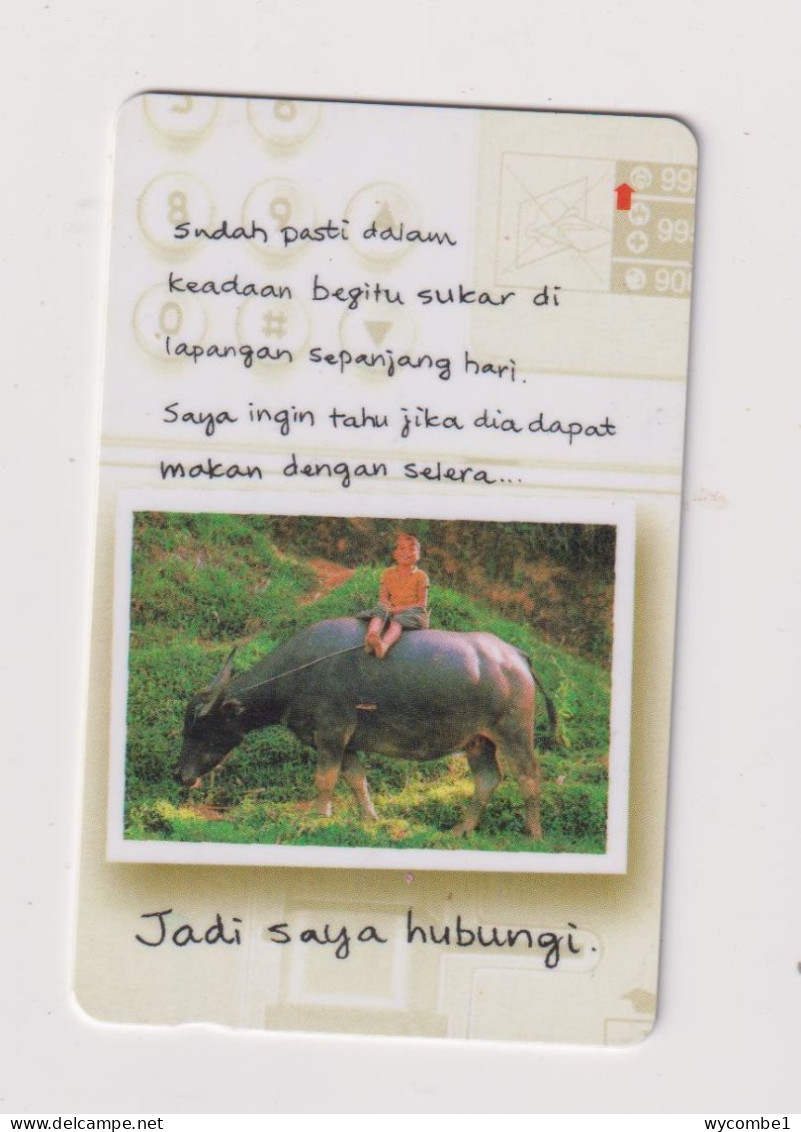 5 6
999
8 9 ▲
995
sudah pasti dalam
900
keadaan begitu sukar di
0 # ▼
lapangan sepanjang hari.
Saya ingin tahu jika dia dapat
makan dengan selera...
Jadi saya hubungi.
www.delcampe.net
wycombe1